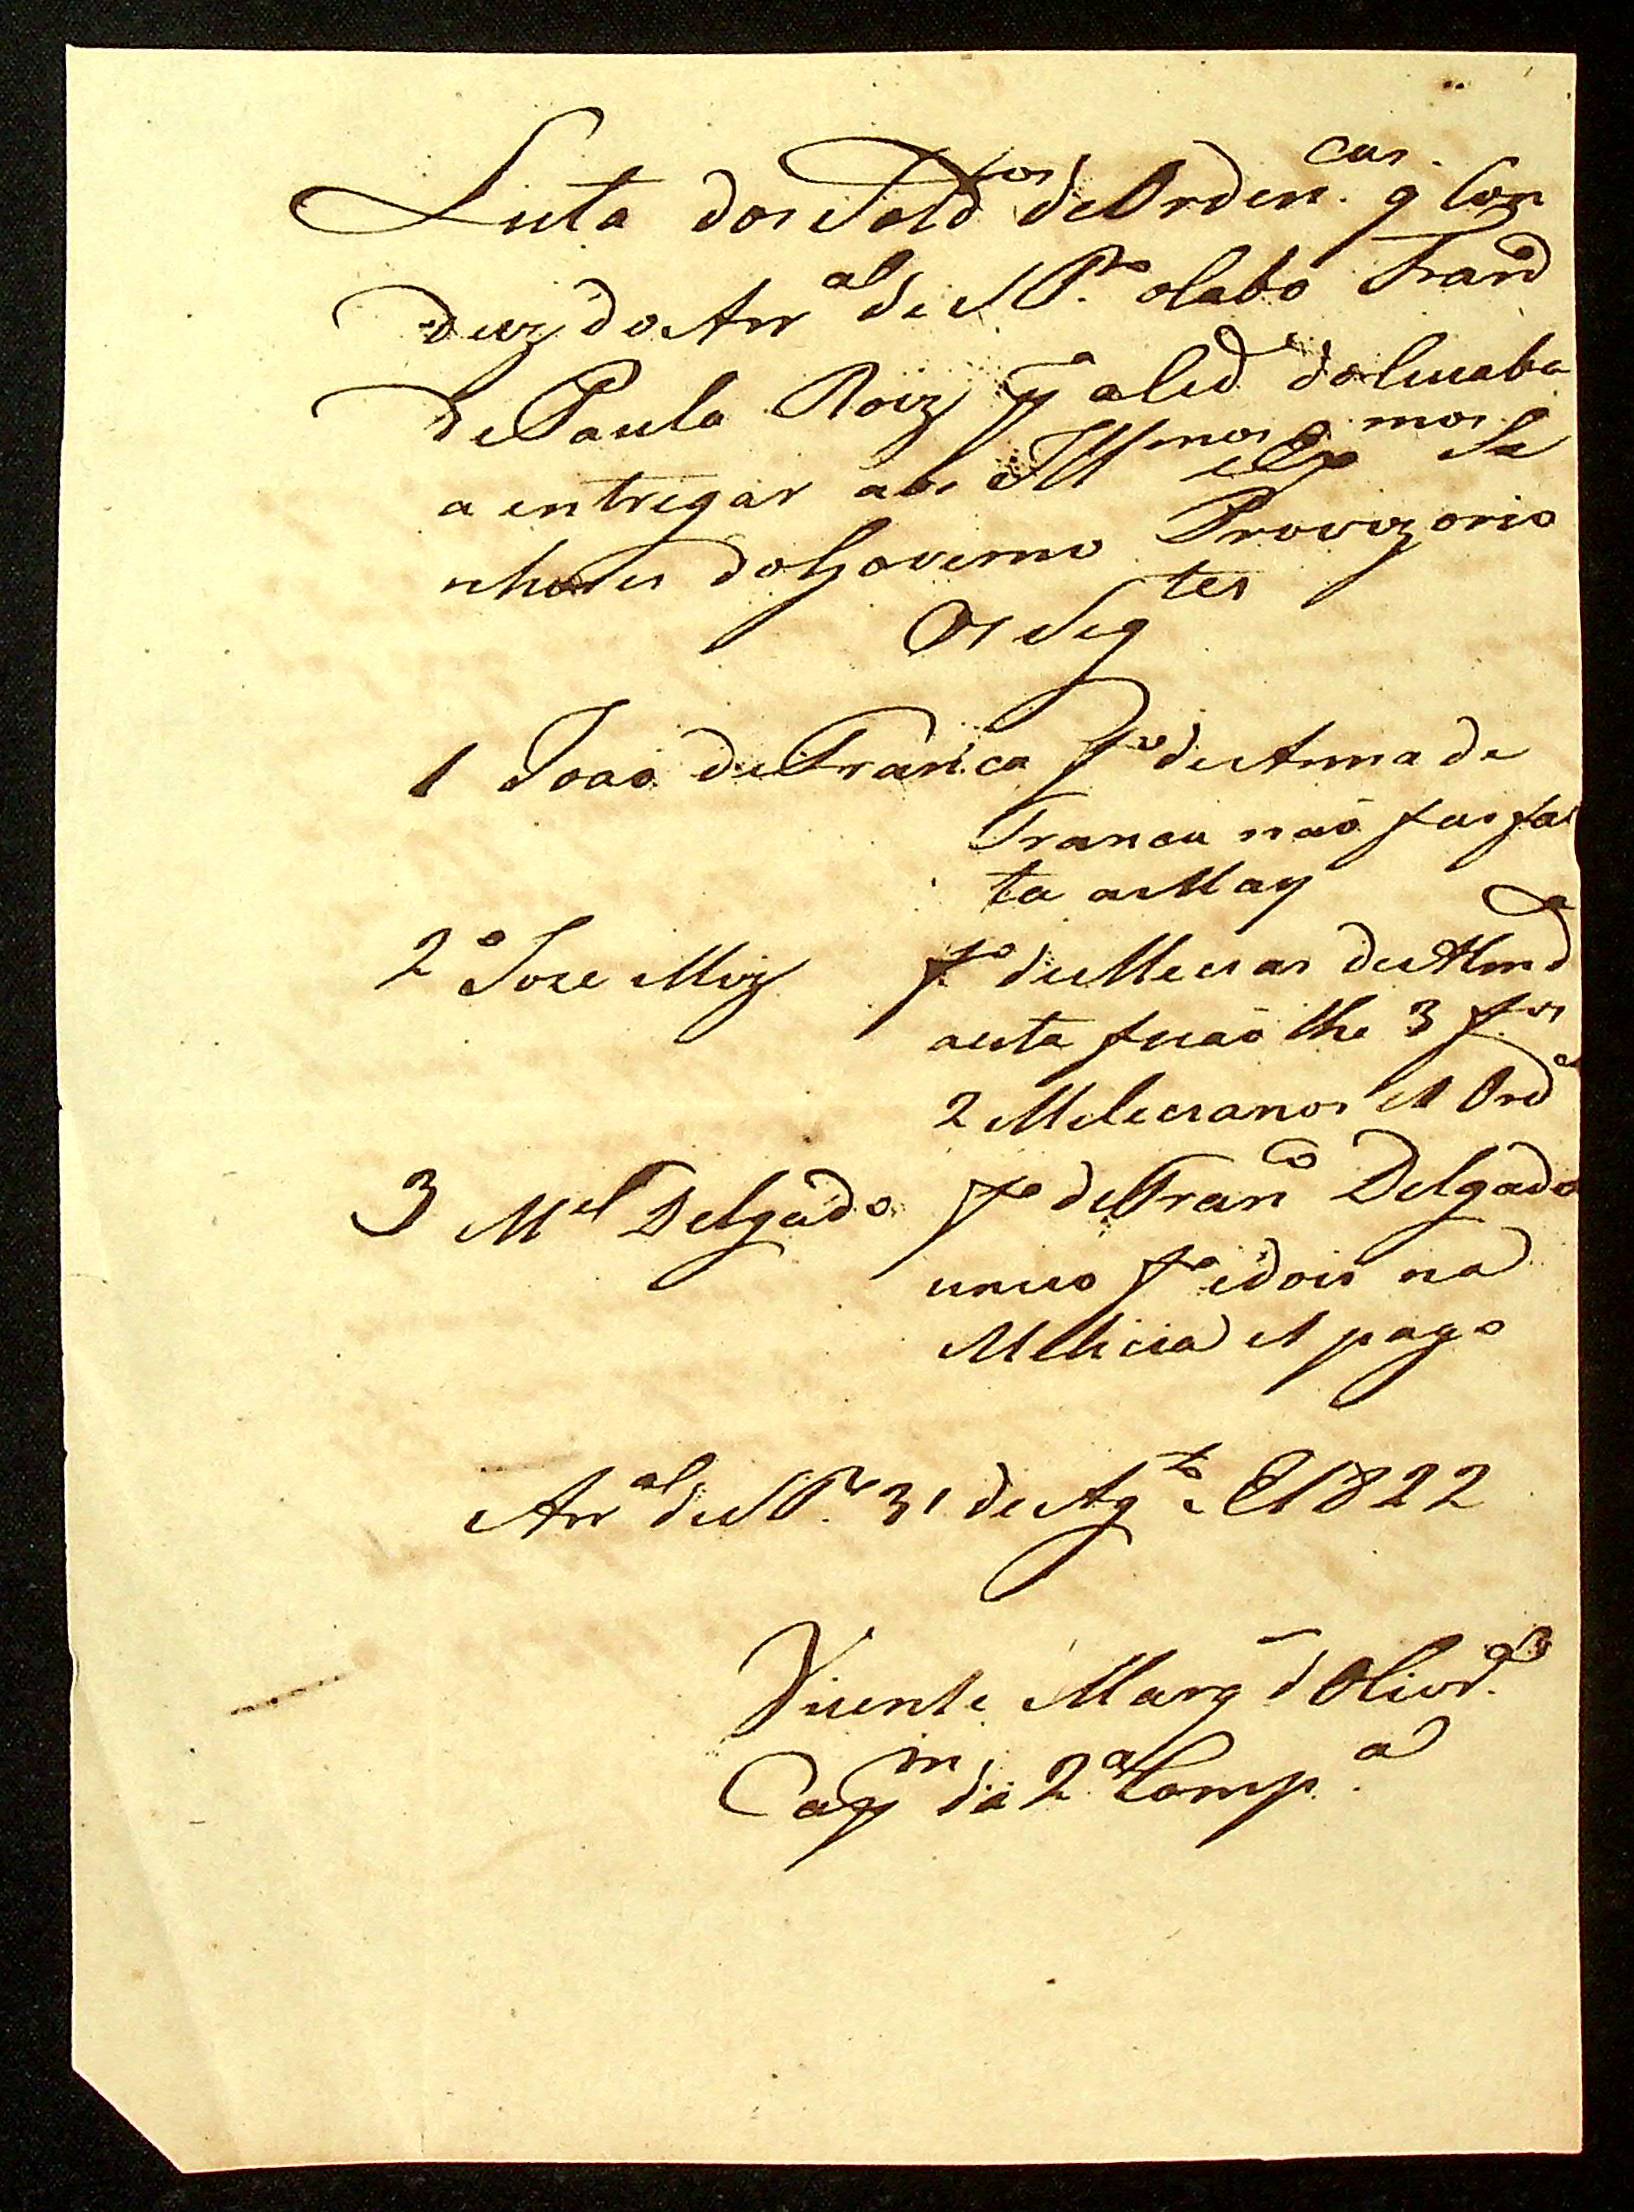 Lista dos Sold.os de Orden.cas q Con
duz do Arr.al de S P.o o Cabo Fran.co
de Paula Roiz p.a a Cid.e do Cuiabá
a entregar aos Ill.mos e Ex.mos Se
nhores do Governo Provizorio
Os Seg.tes
1 João de França f.o de Anna de
Franca não fas fal
ta a May
2.o Joze Miz f.o de Mecias de Almd.a
a esta ficão lhe 3 f.os
2 Melecianos e 1 Ord.ca
3 M.el Delgado f.o de Fran.co Delgado
unico f.o e dois na
Melicia e 1 pago
Arr.al de S P.o 31 de Ag.to de 1822
Vicente Marq d Olivr.a
Cap.m da 2.a Comp.a